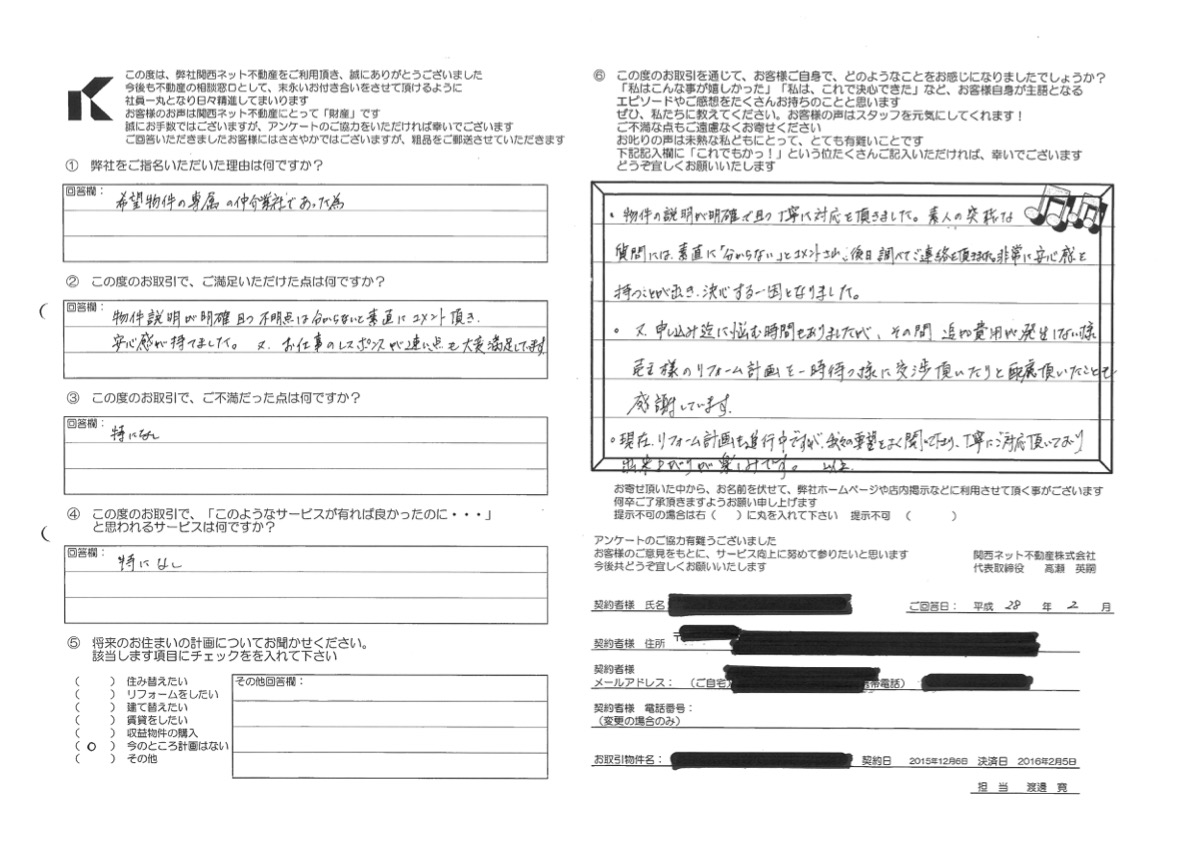 この度は、弊社関西ネット不動産をご利用頂き、誠にありがとうございました
今後も不動産の相談窓口として、末永いお付き合いをさせて頂けるように
社員一丸となり日々精進してまいります
お客様のお声は関西ネット不動産にとって「財産」です
誠にお手数ではございますが、アンケートのご協力をいただければ幸いでございます
ご回答いただきましたお客様にはささやかではございますが、粗品をご郵送させていただきます
① 弊社をご指名いただいた理由は何ですか?
回答欄:
希望物件の専属の仲介業社であった為
② この度のお取引で、ご満足いただけた点は何ですか?
回答欄:
物件説明が明確且つ不明点は分からないと素直にコメント頂き、
安心感が持てました。又、お仕事のレスポンスが速い点も大変満足してます
③ この度のお取引で、ご不満だった点は何ですか?
回答欄:
特になし
④ この度のお取引で、「このようなサービスが有れば良かったのに・・・」
と思われるサービスは何ですか?
回答欄:
特になし
⑤ 将来のお住まいの計画についてお聞かせください。
該当します項目にチェックをを入れて下さい
( ) 住み替えたい
( ) リフォームをしたい
( ) 建て替えたい
( ) 賃貸をしたい
( ) 収益物件の購入
( ○ ) 今のところ計画はない
( ) その他
その他回答欄:
⑥ この度のお取引を通じて、お客様ご自身で、どのようなことをお感じになりましたでしょうか?
「私はこんな事が嬉しかった」「私は、これで決心できた」など、お客様自身が主語となる
エピソードやご感想をたくさんお持ちのことと思います
ぜひ、私たちに教えてください。お客様の声はスタッフを元気にしてくれます!
ご不満な点もご遠慮なくお寄せください
お叱りの声は未熟な私どもにとって、とても有難いことです
下記記入欄に「これでもかっ!」という位たくさんご記入いただければ、幸いでございます
どうぞ宜しくお願いいたします
・物件の説明が明確で且つ丁寧に対応を頂きました。素人の突飛な
質問には、素直に「分からない」とコメントされ、後日調べてご連絡を頂き非常に安心感を
持つことが出き、決心する一因となりました。
・又、申し込み迄に悩む時間もありましたが、その間 追加費用が発生しない様
売主様のリフォーム計画を一時待つ様に交渉頂いたりと配慮頂いたことも
感謝しています。
・現在、リフォーム計画も進行中ですが、我々の要望をよく聞いて下さり、丁寧にご対応頂いており
出来上がりが楽しみです。 以上
お寄せ頂いた中から、お名前を伏せて、弊社ホームページや店内掲示などに利用させて頂く事がございます
何卒ご了承頂きますようお願い申し上げます
提示不可の場合は右( )に丸を入れて下さい 提示不可 ( )
アンケートのご協力有難うございました
お客様のご意見をもとに、サービス向上に努めて参りたいと思います
今後共どうぞ宜しくお願いいたします
関西ネット不動産株式会社
代表取締役 高瀬 英嗣
契約者様 氏名
ご回答日: 平成 28 年 2 月
契約者様 住所 〒
契約者様
メールアドレス: (ご自宅) 携帯電話)
契約者様 電話番号:
(変更の場合のみ)
お取引物件名: 契約日 2015年12月6日 決済日 2016年2月5日
担 当 渡邊 寛